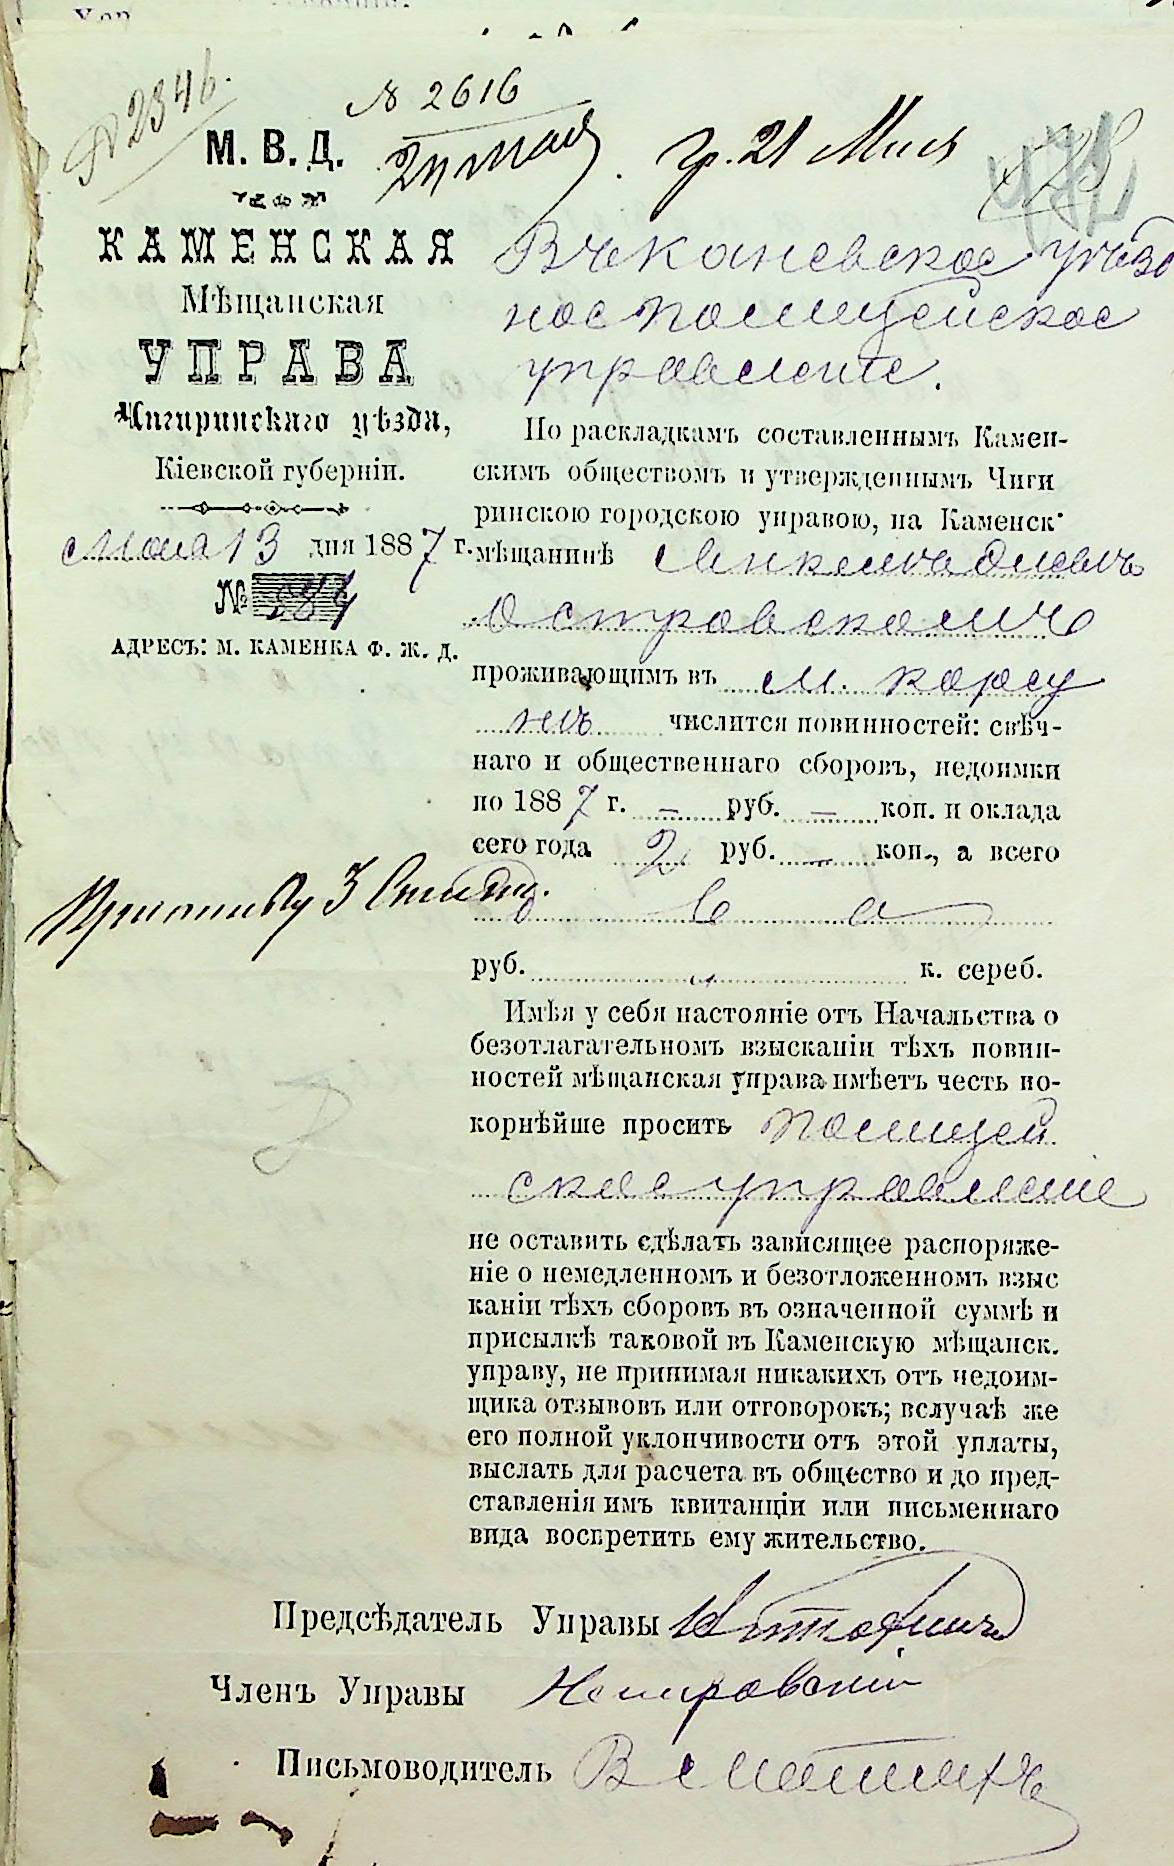 № 2346.
№ 2616
24 мая. гр. 21 Мая
М. В. Д.
КАМЕНСКАЯ
Мѣщанская
УПРАВА
Чигиринскаго уѣзда,
Кіевской губерніи.
мая 13 дня 1887 г.
№ 584
АДРЕСЪ: М. КАМЕНКА Ф. Ж. Д.
Въ Каневское уѣзд
ное полицейское
управленіе.
По раскладкамъ составленнымъ Камен-
скимъ обществомъ и утвержденнымъ Чиги
ринскою городскою управою, на Каменск
мѣщанинѣ
Островскомъ
проживающимъ въ м. Корсу
нѣ числится повинностей: свѣч-
наго и общественнаго сборовъ, недоимки
по 1887 г. — руб. — коп. и оклада
сего года 2 руб. — коп., а всего
два
руб. к. сереб.
Имѣя у себя настояніе отъ Начальства о
безотлагательномъ взысканіи тѣхъ повин-
ностей мѣщанская управа имѣетъ честь по-
корнѣйше просить полицей
ское управленіе
не оставить сдѣлать зависящее распоряже-
ніе о немедленномъ и безотложенномъ взыс
каніи тѣхъ сборовъ въ означенной суммѣ и
присылкѣ таковой въ Каменскую мѣщанск.
управу, не принимая никакихъ отъ недоим-
щика отзывовъ или отговорокъ; вслучаѣ же
его полной уклончивости отъ этой уплаты,
выслать для расчета въ общество и до пред-
ставленія имъ квитанціи или письменнаго
вида воспретить ему жительство.
Предсѣдатель Управы
Членъ Управы
Письмоводитель